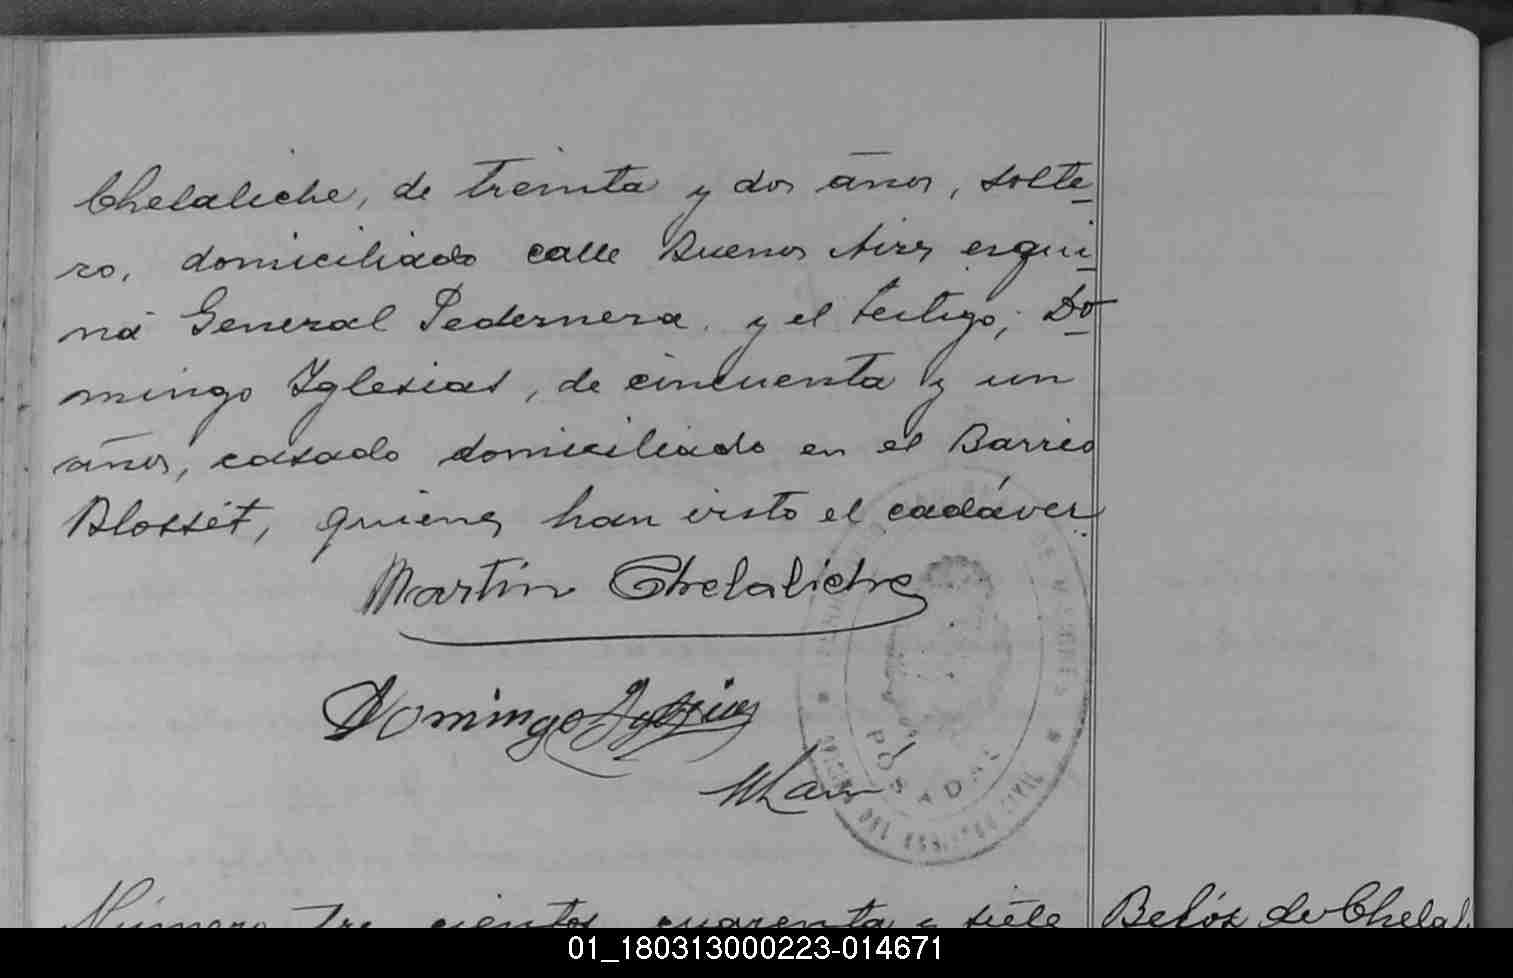 Chelaliche, de treinta y dos años, solte
ro, domiciliado calle Buenos Aires esqui
na General Pedernera y el testigo, Do
mingo Iglesias, de cincuenta y un
años, casado domiciliado en el Barrio
Blosset, quienes han visto el cadáver.
Martín Chelaliche
Domingo Iglesias
POSADAS
Número tre cientos cuarenta y siete
de Chelal
01_180313000223-014671